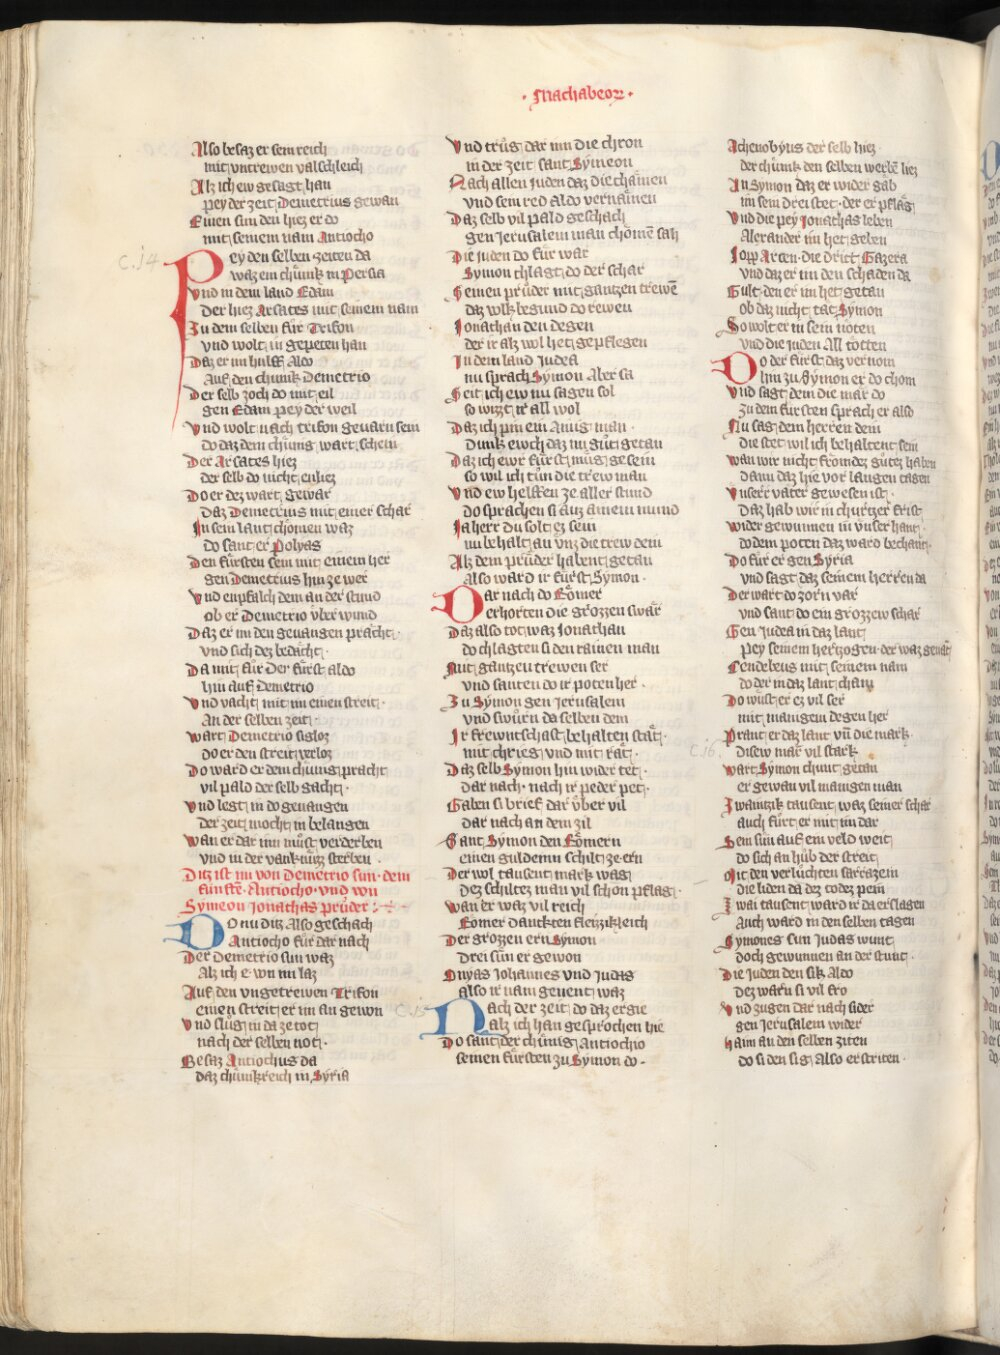 · Machabeoꝝ ·
Also besaz er sein reich
mit vntrewen valschleich
Alz ich ew gesagt han
pey der zeit Demetrius gewan
Einen sun den hiez er do
mit seinem nam Antiocho
C. 14
Pey den selben zeiten da
waz ein chůnk in Persia
Vnd in dem land Edam
Der hiez Arsates mit seinem nam
Zu dem selben fůr Trifon
vnd wolt in gepeten han
Daz er im hulff Aldo
Auf den chunk Demetrio
Der selb zoch do mit eil
gen Edam pey der weil
Vnd wolt nach trifon geuarn sein
do daz dem chůnig wart schein
Der Arsates hiez
der selb do nicht enliez
Do er dez wart gewar
Daz Demetrius mit einer schar
In sein lant chomen waz
do sant er Polyas
Den fůrsten sein mit einem her
gen Demetrius hin ze wer
Vnd enpfalch dem an der stund
ob er Demetrio vber wund
Daz er im den geuangen pracht
vnd sich dez bedacht
Da mit fůr Der fůrst aldo
hin auf Demetrio
Vnd vacht mit im einen streit
An der selben zeit
Wart Demetrio sigloz
do er den streit verloz
Do ward er dem chůnig pracht
vil pald der selb gacht
Vnd legt in do geuangen
der zeit mocht in belangen
Wan er dar inn můst verderben
vnd in der vanknůzz sterben
Ditz ist nu von Demetrio sun dem
fůnften Antiocho vnd von
Symeon Jonathas průder
Do nu ditz Also geschach
Antiocho fůr dar nach
Der Demetrio sun waz
Alz ich e wn nu laz
Auf den vngetrewen Trifon
einen streit er im an gewon
Vnd slůg in da ze tot
nach der selben not
Besaz Antiochus da
daz chůnkreich in Syria
Vnd trůg dar inn die chron
in der zeit sant Symeon
Nach allen Juden daz die chamen
vnd sein red aldo vernamen
Daz selb vil pald geschach
gen Jerusalem man chomē sah
Die Juden do fůr war
Symon chlagt do der schar
Seinen průder mit gantzen trewē
daz wlk begund do rewen
Jonathan den degen
der ir alz wol het gepflegen
In dem land Judea
nu sprach Symon Aber sa
Seit ich ew nu sagen sol
so wizzt ir all wol
Daz ich pin ein Ainig man
Dunk ewch daz nu gůt getan
Daz ich ewr fůrst můg gesein
so wil ich tůn die trew mein
Vnd ew helffen ze aller stund
do sprachen si auz ainem mund
Ja herr du solt ez sein
nu behalt an vnz die trew dein
Alz dein průder habent getan
Also ward ir fůrst Symon
Dar nach do Romer
erhorten die grozzen swar
Daz also tot waz Jonathan
do chlagten si den rainen man
Mit gantzen trewen ser
vnd santen do ir poten her
Zu Symon gen Jerusalem
vnd swůrn da selben dem
Ir frewntschaft behalten stat
mit chrieg vnd mit rat
Daz selb Symon hin wider tet
dar nach nach ir peder pet
Gaben si brief dar vber vil
dar nach an dem zil
Sant Symon den Romern
einen guldeinn schilt ze ern
Der wol tausent mark wag
dez schiltez man vil schon pflag
Wan er waz vil reich
Romer danckten fleizzikleich
Der grozzen ern Symon
Drei sůn er gewon
Onyas Johannes vnd Judas
also ir nam genent waz
C. 15
Nach der zeit do daz ergie
alz ich han gesprochen hie
Do sant der chůnig Antiocho
seinen fůrsten zu Symon do
Achenobyus der selb hiez
der chůnk den selben werbē liez
An Symon daz er wider gab
im sein drei stet der er pflag
Vnd die pey Jonathas leben
Alexander im het geben
Jopp Arcen die dritt Gazera
vnd daz er im den schaden da
Gult den er im het getan
ob daz nicht tat Symon
So wolt er in sein noten
vnd die Juden All totten
Do der fůrst daz vernom
hin zu Symon er do chom
Vnd sagt dem die mar do
zu dem fůrsten sprach er also
Nu sag dem herren dein
die stet wil ich behaltent sein
Wan wir nicht fromdez gůtez haben
dann daz hie vor langen tagen
Vnserr vater gewesen ist
daz hab wir in churtzer frist
Wider gewunnen in vnser hant
do dem poten daz ward bechant
Do fůr er gen Syria
vnd sagt daz seinem herren da
Der wart do zorn var
vnd sant do ein grozzew schar
Gen Judea in daz lant
pey seinem hertzogen der waz genāt
Cendebeus mit seinem nam
do der in daz lant cham
Do wůst er ez vil ser
mit manigem degen her
Prant er daz lant vn̄ die mark
C. 16.
disew mar vil stark
Wart Symon chunt getan
er gewan vil manigen man
Zwaintzik tausent waz seiner schar
auch fůrt er mit im dar
Sein sun auf ein veld weit
do sich an hůb der streit
Mit den verlůchten sarrazein
die liden da dez todez pein
Zwai tausent ward ir da erslagen
Auch ward in den selben tagen
Symones sun Judas wunt
doch gewunnen an der stunt
Die Juden den sik Aldo
dez warn si vil fro
Vnd zugen dar nach sider
gen Jerusalem wider
Haim an den selben ziten
do si den sig also erstriten